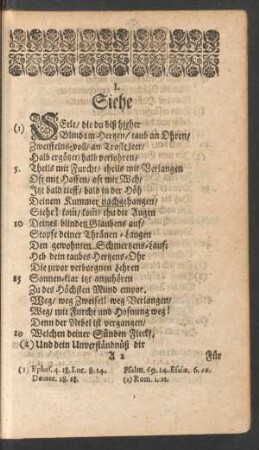 I.
Siehe
(1) SEele/ die du biß hieher
Blind im Hertzen/ taub an Ohren/
Zweiffelns-voll/ an Troste leer/
Halb ergötzt/ halb verlohren/
5. Theils mit Furcht/ theils mit Verlangen
Oft mit Hoffen/ oft mit Weh/
Itzt bald tieff/ bald in der Höh
Deinem Kummer nachgehangen/
Siehe! kom̄/ kom̄/ thu die Augen
10 Deines blinden Glaubens auf
Stopfe deiner Thränen-Laugen
Den gewohnten Schmertzens-Lauf:
Heb dein taubes Hertzens-Ohr
Die zuvor verborgnen Lehren
15 Sonnen-klar itzt anzuhören
Zu des Höchsten Mund empor.
Weg/ weg Zweifel! weg Verlangen/
Weg/ mit Furcht und Hofnung weg!
Denn der Nebel ist vergangen/
20 Welchen deiner Sünden Fleck/
(2) Und dein Unverständnüß dir
A 2 Für
(1) Ephes. 4. 18. Luc. 8. 14. Psalm. 69. 24. Esaiæ. 6. 10.
18. 18. (2) Rom. 1. 21.